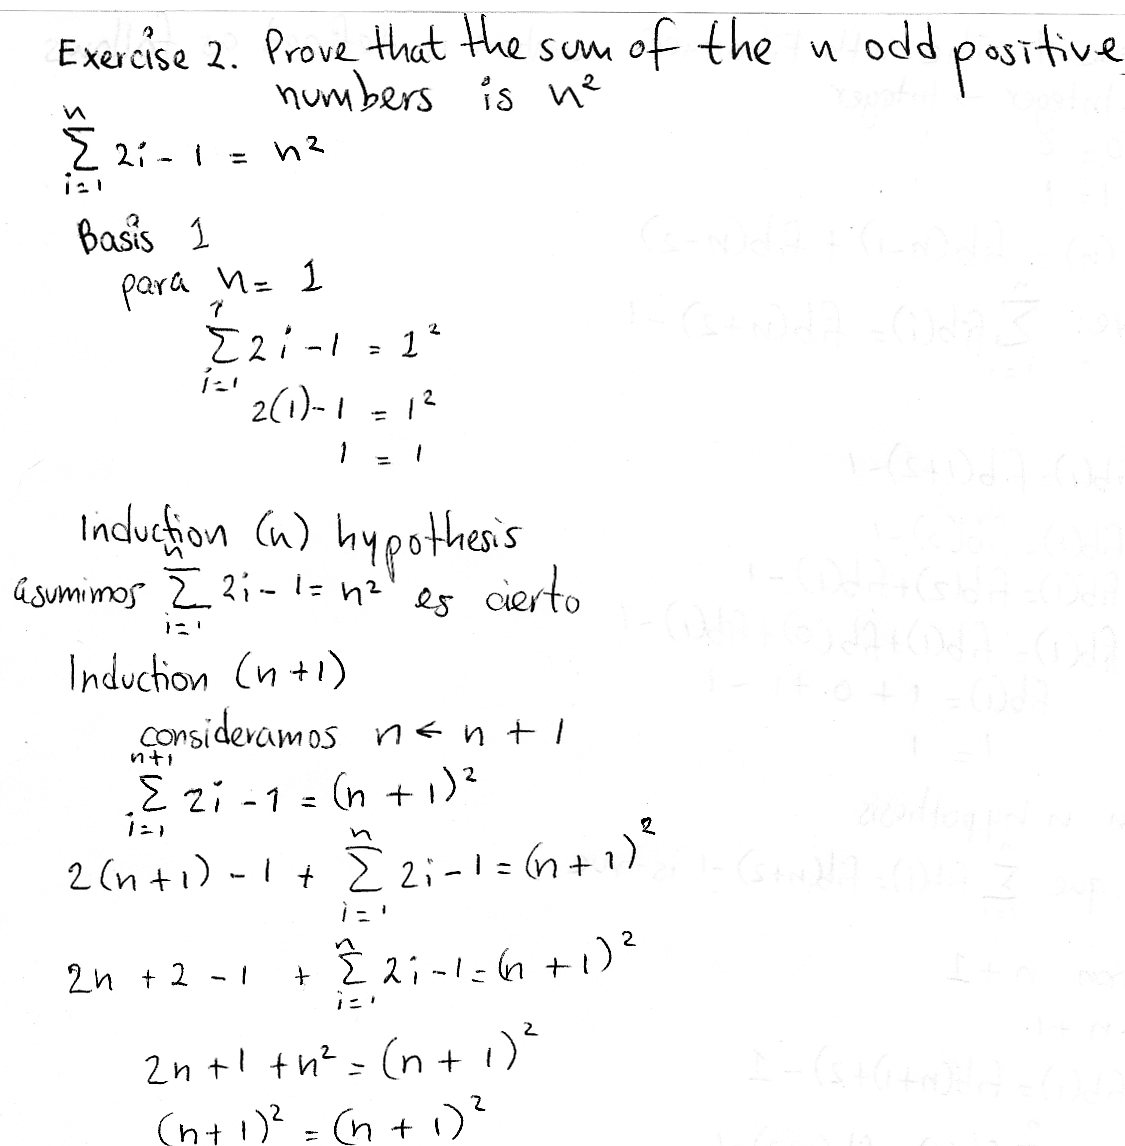 Exercise 2. Prove that the sum of the n odd positive
numbers is n²
n
∑ 2i - 1 = n²
i=1
Basis 1
para n = 1
1
∑ 2i - 1 = 1²
i=1
2(1) - 1 = 1²
1 = 1
Induction (n) hypothesis
n
asumimos ∑ 2i - 1 = n² es cierto
i=1
Induction (n+1)
consideramos n ← n + 1
n+1
∑ 2i - 1 = (n + 1)²
i=1
n
2(n+1) - 1 + ∑ 2i - 1 = (n + 1)²
i=1
n
2n + 2 - 1 + ∑ 2i - 1 = (n + 1)²
i=1
2n + 1 + n² = (n + 1)²
(n+1)² = (n + 1)²